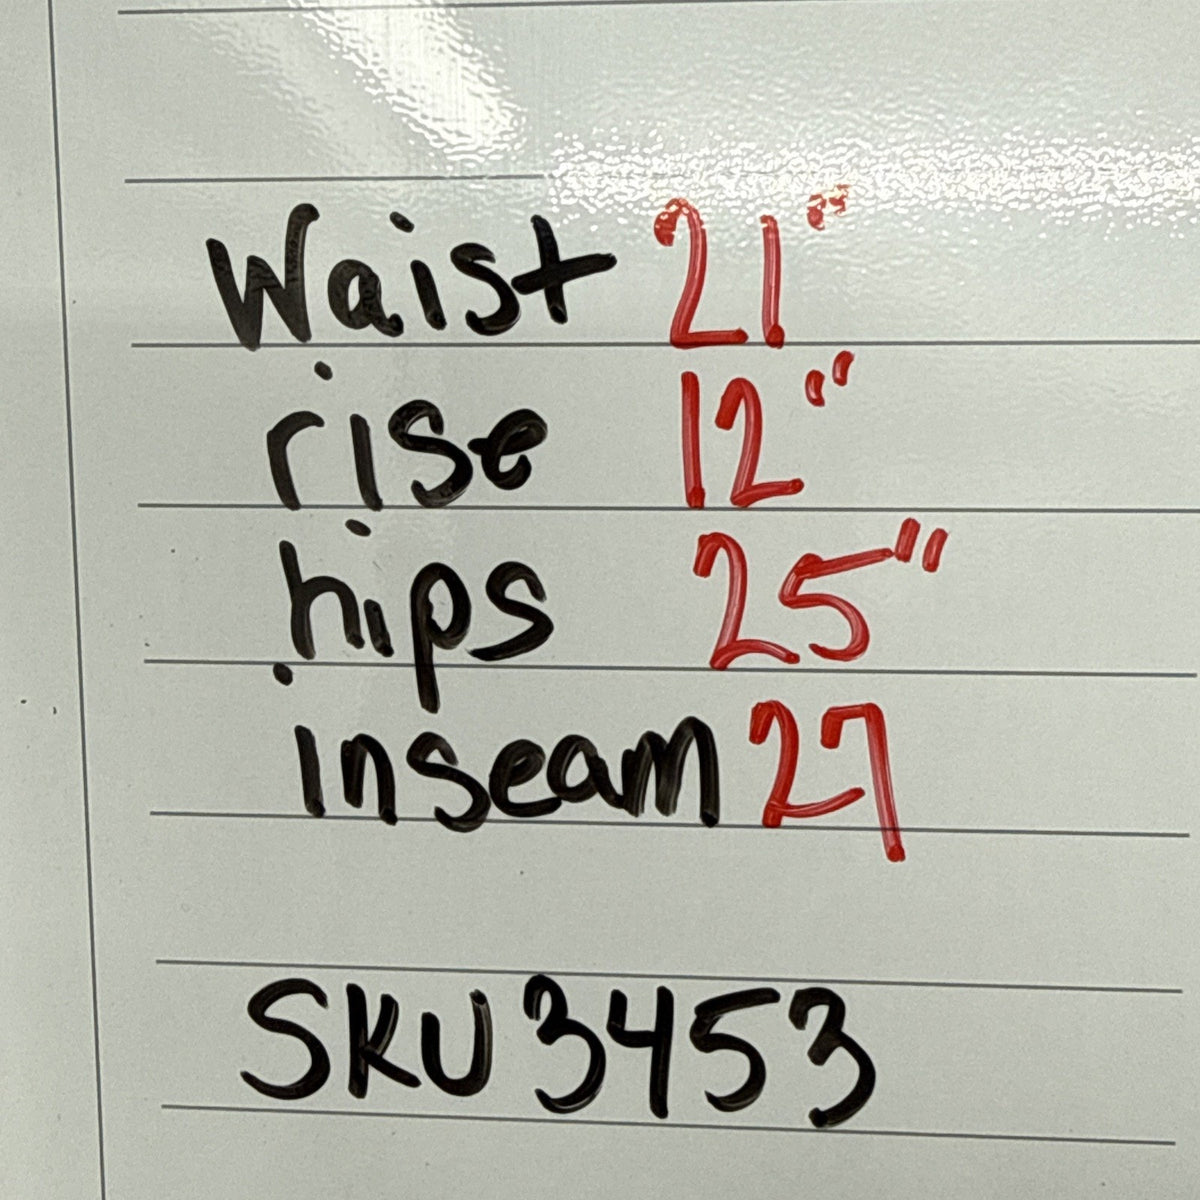 Waist 21"
rise 12"
hips 25"
inseam 27
SKU 3453